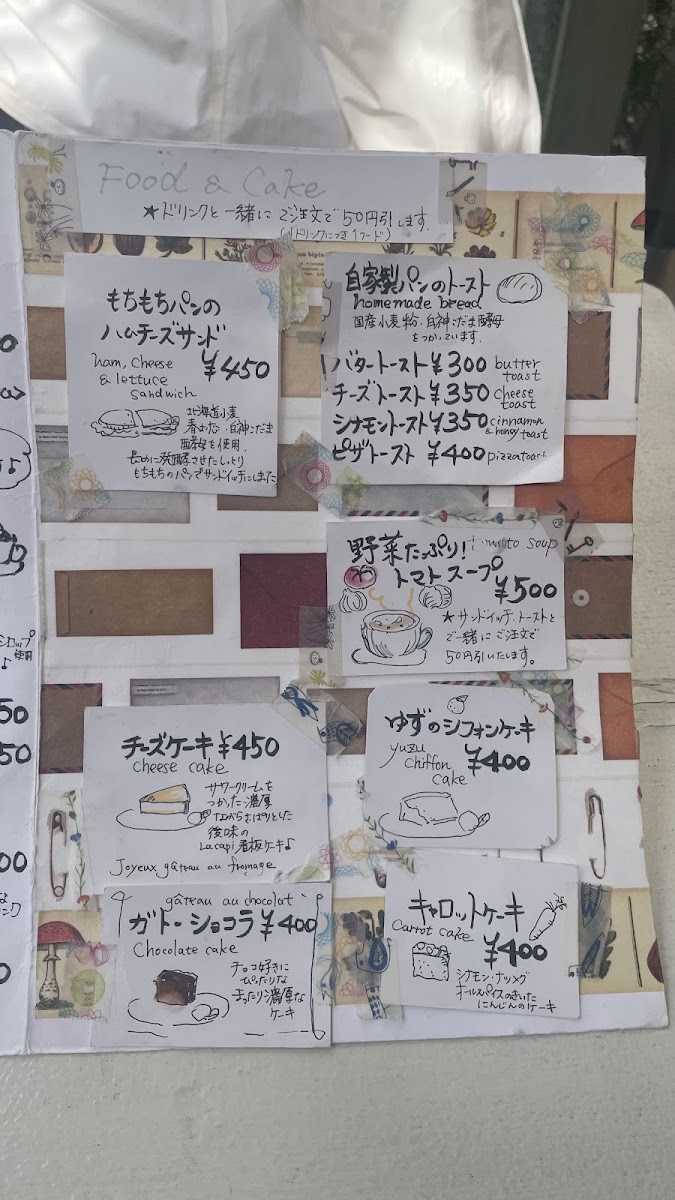 Food & Cake
★ドリンクと一緒にご注文で50円引します。
(1ドリンクにつき1フード)
もちもちパンの
ハムチーズサンド
¥450
ham, cheese
& lettuce
sandwich
北海道小麦
春よ恋・白神こだま
酵母を使用。
長めに発酵させたしっとり
もちもちのパンでサンドイッチにしました
自家製パンのトースト
homemade bread
国産小麦粉・白神こだま酵母
をつかっています。
バタートースト ¥300 butter
toast
チーズトースト ¥350 cheese
toast
シナモントースト ¥350 cinnamon
& honey toast
ピザトースト ¥400 pizza toast
野菜たっぷり! tomato soup
トマトスープ
¥500
★サンドイッチ、トーストと
ご一緒にご注文で
50円引いたします。
チーズケーキ ¥450
cheese cake
サワークリームを
つかった濃厚
ながらさっぱりとした
後味の
Lacapi看板ケーキ♪
Joyeux gâteau au fromage
ゆずのシフォンケーキ
yuzu
chiffon
cake
¥400
gâteau au chocolat
ガトーショコラ ¥400
Chocolate cake
チョコ好きに
ぴったりな
まったり濃厚な
ケーキ
キャロットケーキ
Carrot cake
¥400
シナモン・ナツメグ
オールスパイスのきいた
にんじんのケーキ
シロップ
使用
50
50
00